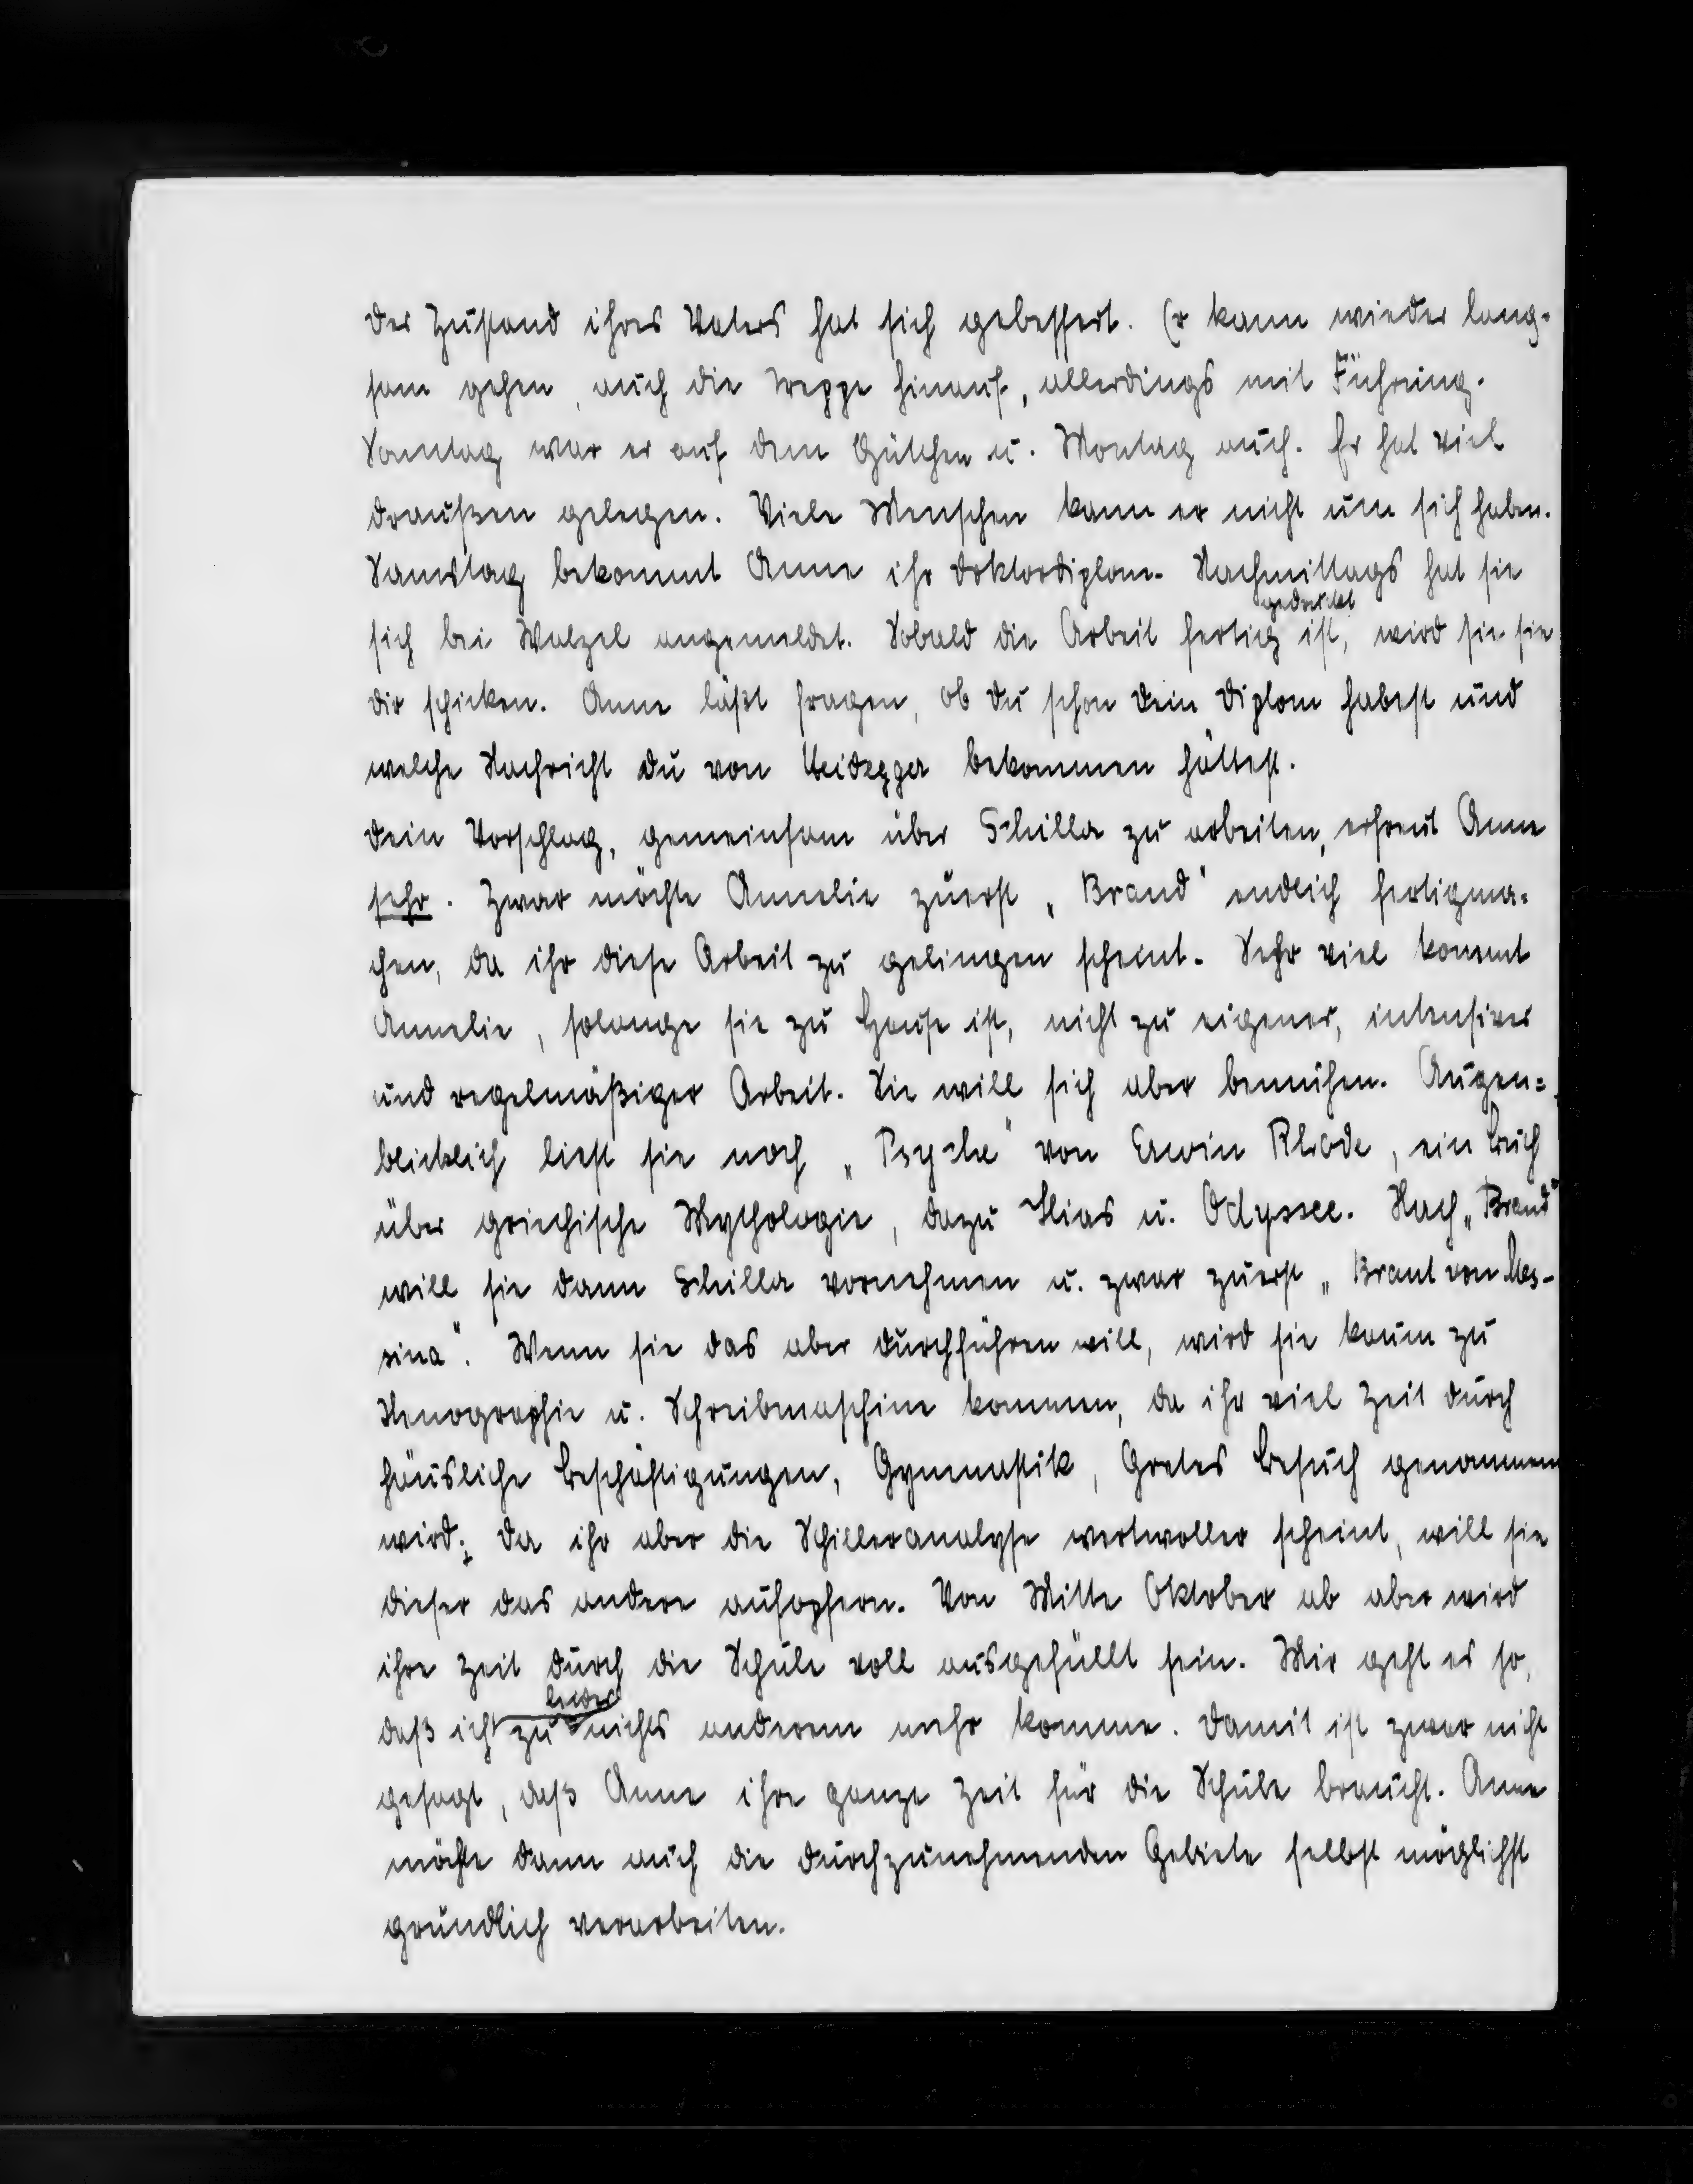 Der Zustand ihres Vaters hat sich gebessert. Er kann wieder lang-
sam gehen, auch die Treppe hinauf, allerdings mit Führung.
Sonntag war er auf dem Gütchen u. Montag auch. Er hat viel
draußen gelegen. Viele Menschen kann er nicht um sich haben.
Samstag bekommt Anne ihr Doktordiplom. Nachmittags hat sie
gedruckt
sich bei Walzel angemeldet. Sobald die Arbeit fertig ist, wird sie sie
dir schicken. Anne läßt fragen, ob du schon dein Diplom habest und
welche Nachricht du von Heidegger bekommen hättest.
Dein Vorschlag, gemeinsam über Schiller zu arbeiten, erfreut Anne
sehr. Zwar möchte Annelie zuerst „Brand" endlich fertigma-
chen, da ihr diese Arbeit zu gelingen scheint. Sehr viel kommt
Annelie, solange sie zu Hause ist, nicht zu eigener, intensiver
und regelmäßiger Arbeit. Sie will sich aber bemühen. Augen=
blicklich liest sie noch „Psyche" von Erwin Rhode, ein Buch
über griechische Mythologie, dazu Ilias u. Odyssee. Nach „Brand"
will sie dann Schiller vornehmen u. zwar zuerst „Braut von Mes-
sina". Wenn sie das aber durchführen will, wird sie kaum zu
Stenographie u. Schreibmaschine kommen, da ihr viel Zeit durch
häusliche Beschäftigungen, Gymnastik, Gretes Besuch genommen
wird; da ihr aber die Schilleranalyse wertvoller scheint, will sie
dieser das andere aufopfern. Von Mitte Oktober ab aber wird
ihre Zeit durch die Schule voll ausgefüllt sein. Mir geht es so,
leider
daß ich zu nichts anderem mehr komme. Damit ist zwar nicht
gesagt, daß Anne ihre ganze Zeit für die Schule braucht. Anne
möchte dann auch die durchzunehmenden Gebiete selbst möglichst
gründlich verarbeiten.